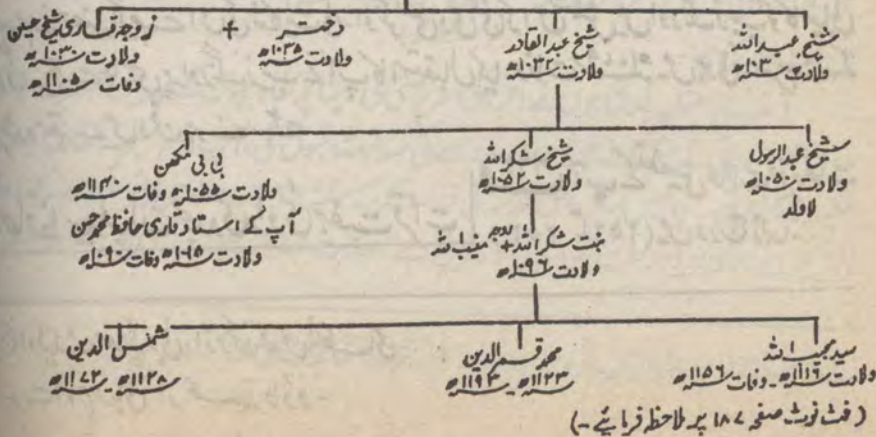 شیخ عبداللہ
ولادت ۱۰۳۰ھ
شیخ عبدالقادر
ولادت ۱۰۳۲ھ
دختر +
ولادت ۱۰۳۵ھ
زوجہ قاری شیخ حسین
ولادت ۱۰۳۰ھ
وفات ۱۱۰۵ھ
شیخ عبدالرسول
ولادت ۱۰۵۰ھ
لاولد
شیخ شکراللہ
ولادت ۱۰۵۲ھ
بی بی مکھن
ولادت ۱۰۵۵ھ وفات ۱۱۴۰ھ
آپ کے استاد قاری حافظ محمد حسن
ولادت ۱۰۶۵ھ وفات ۱۰۹۰ھ
بنت شکراللہ + زوجہ منیب اللہ
ولادت ۱۰۹۶ھ
سید محب اللہ
ولادت ۱۱۱۶ھ - وفات ۱۱۵۶ھ
محمد قسم الدین
۱۱۲۳ھ - ۱۱۹۳ھ
شمس الدین
۱۱۲۸ھ - ۱۱۷۲ھ
(فٹ نوٹ صفحہ ۱۸۷ پر ملاحظہ فرمائیے -)